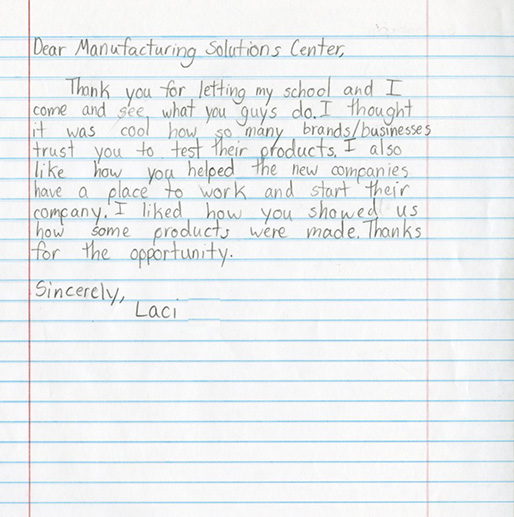 Dear Manufacturing Solutions Center,
Thank you for letting my school and I
come and see what you guys do. I thought
it was cool how so many brands/businesses
trust you to test their products. I also
like how you helped the new companies
have a place to work and start their
company. I liked how you showed us
how some products were made. Thanks
for the opportunity.
Sincerely,
Laci